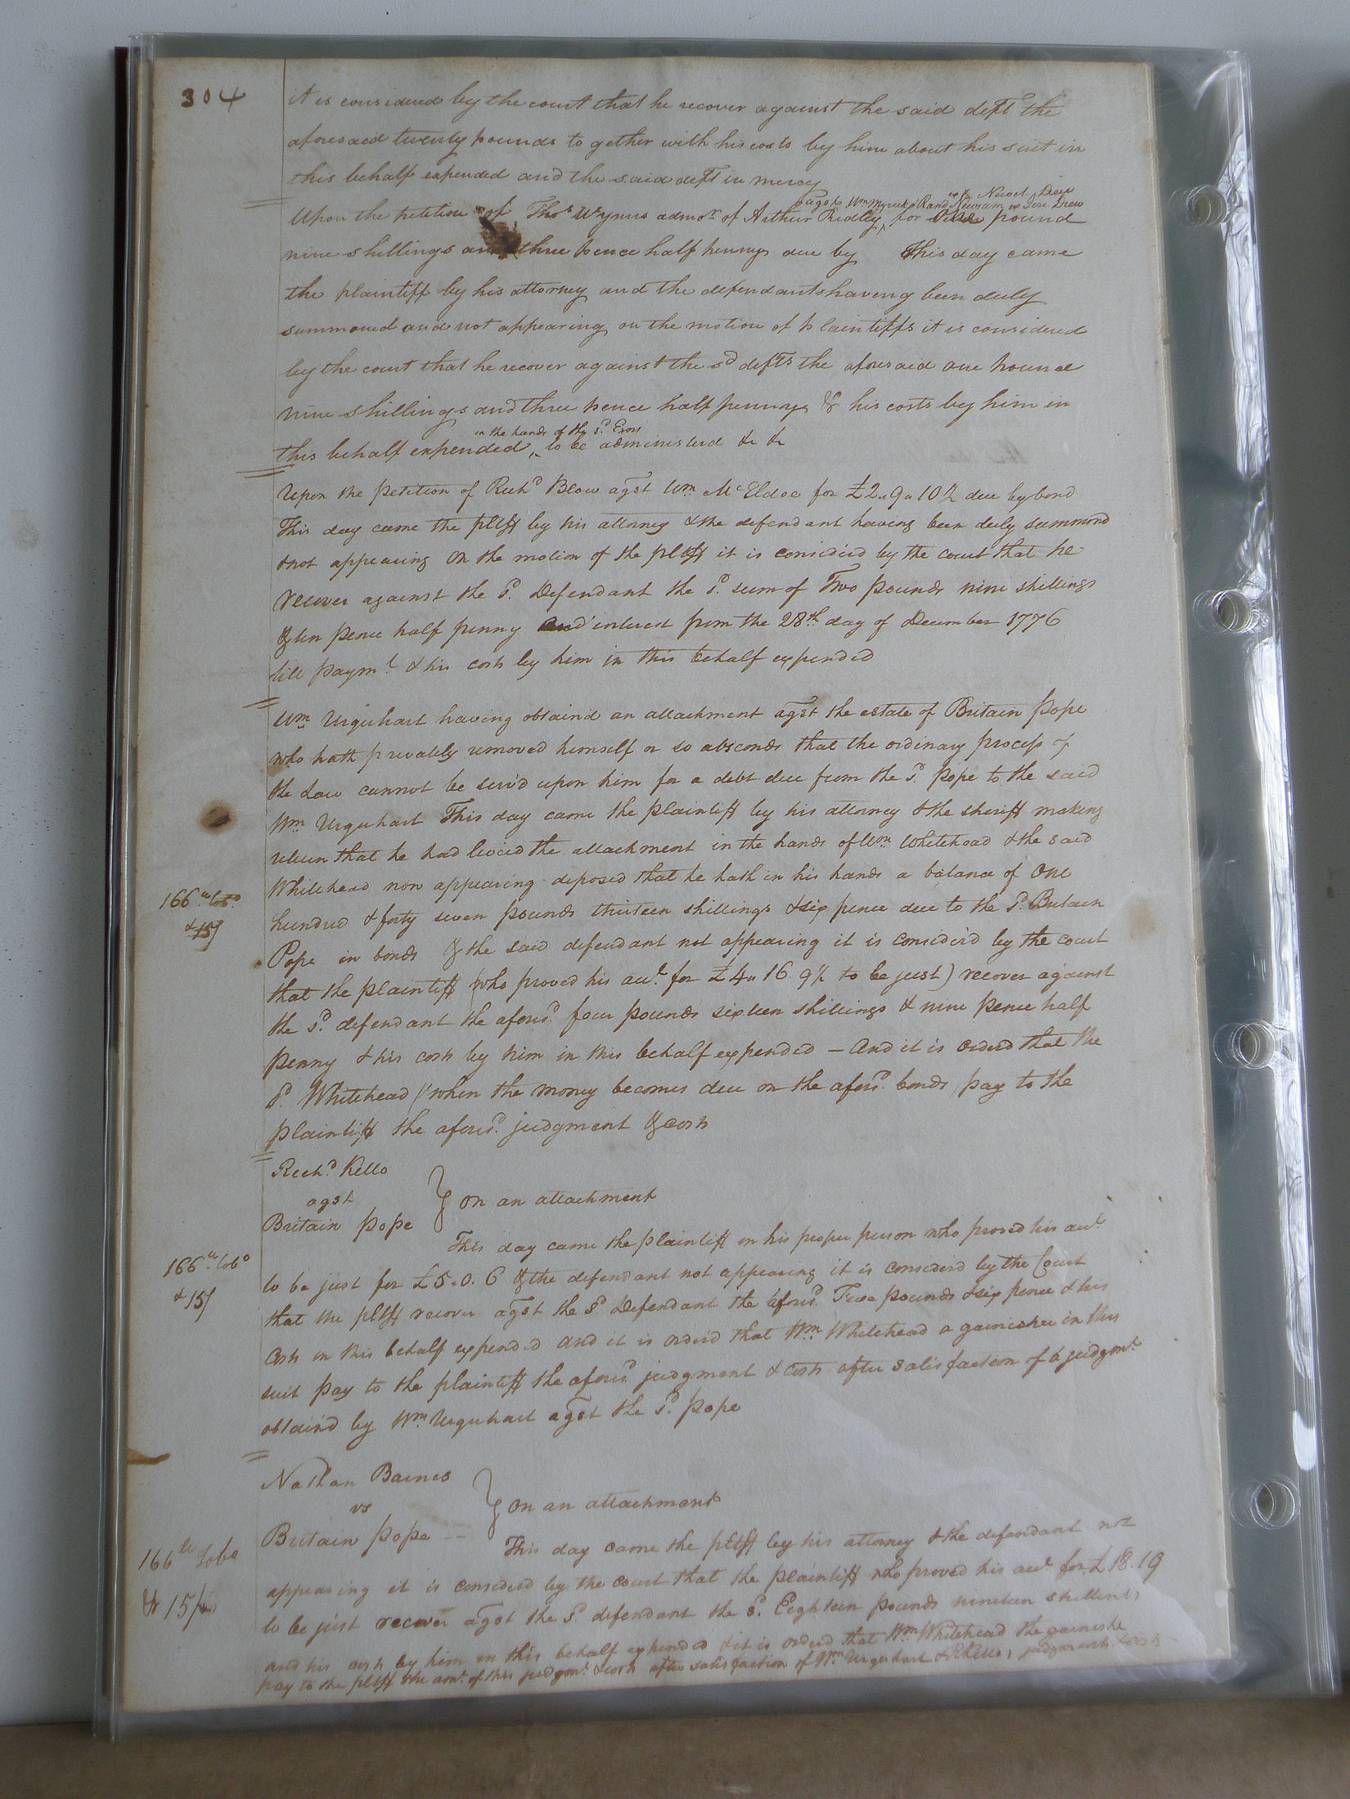 304
it is considered by the court that he recover against the said deft the
aforesaid twenty pounds to gether with his costs by him about his suit in
this behalf expended and the said deft in mercy
agst Wm Myrick Rand Newsam Jere Drew
Upon the petition of Thos Wynns admor of Arthur Ridley, for One pound
nine shillings and three pence half penny due by This day came
the plaintiff by his attorney and the defendants having been duly
summoned and not appearing, on the motion of plaintiffs it is considered
by the court that he recover against the sd defts the aforesaid one pound
nine shillings and three pence half penny & his costs by him in
in the hands of the sd Exors
this behalf expended, to be administerd &c &c
Upon the petition of Richd Blow agst Wm McEldoe for £2.. 9.. 10½ due by bond
This day came the pltff by his attorney & the defendant having been duly summond
& not appearing On the motion of the pltff it is considerd by the court that he
recover against the sd. Defendant the sd. sum of Two pounds nine shillings
& ten pence half penny and interest from the 28th day of December 1776
till paymt & his costs by him in this behalf expended
Wm Urquhart having obtaind an attachment agst the estate of Britain Pope
who hath privately removed himself or so absconds that the ordinary process of
the Law cannot be serv'd upon him for a debt due from the sd. Pope to the said
Wm Urquhart This day came the plaintiff by his attorney & the sheriff making
return that he had levied the attachment in the hands of Wm Whitehead & the said
Whitehead now appearing deposed that he hath in his hands a balance of One
166 lb to
& 15/
hundred & forty seven pounds thirteen shillings & six pence due to the sd. Britain
Pope in bonds & the said defendant not appearing it is considerd by the court
that the plaintiff (who proved his acct. for £4.. 16. 9½ to be just) recover against
the sd. defendant the aforsd. four pounds sixteen shillings & nine pence half
penny & his costs by him in this behalf expended – And it is orderd that the
sd. Whitehead (when the money becomes due on the aforsd. bonds) pay to the
plaintiff the aforsd. judgment & costs
Richd Kello
agst } On an attachment
Britain Pope
This day came the plaintiff in his proper person who proved his acct
166 lb tobo
& 15/
to be just for £5.. 0. 6 & the defendant not appearing it is considerd by the Court
that the pltff recover agst the sd Defendant the aforsd. Five pounds & six pence & his
Costs in this behalf expended and it is orderd that Wm Whitehead a garnishee in this
suit pay to the plaintiff the aforsd judgment & costs after satisfaction of a judgmt
obtaind by Wm Urquhart agst the sd. Pope
Nathan Barnes
vs } On an attachment
Britain Pope
166 lb tobo
& 15/
This day came the pltff by his attorney & the defendant not
appearing it is considerd by the court that the plaintiff who proved his acct for £18. 19
to be just recover agst the sd. defendant the sd. Eighteen pounds nineteen shillings
and his costs by him in this behalf expended & it is orderd that Wm Whitehead the garnishe
pay to the pltff the amt. of this judgmt & costs after satisfaction of Wm Urquhart & R Kello's judgments & costs